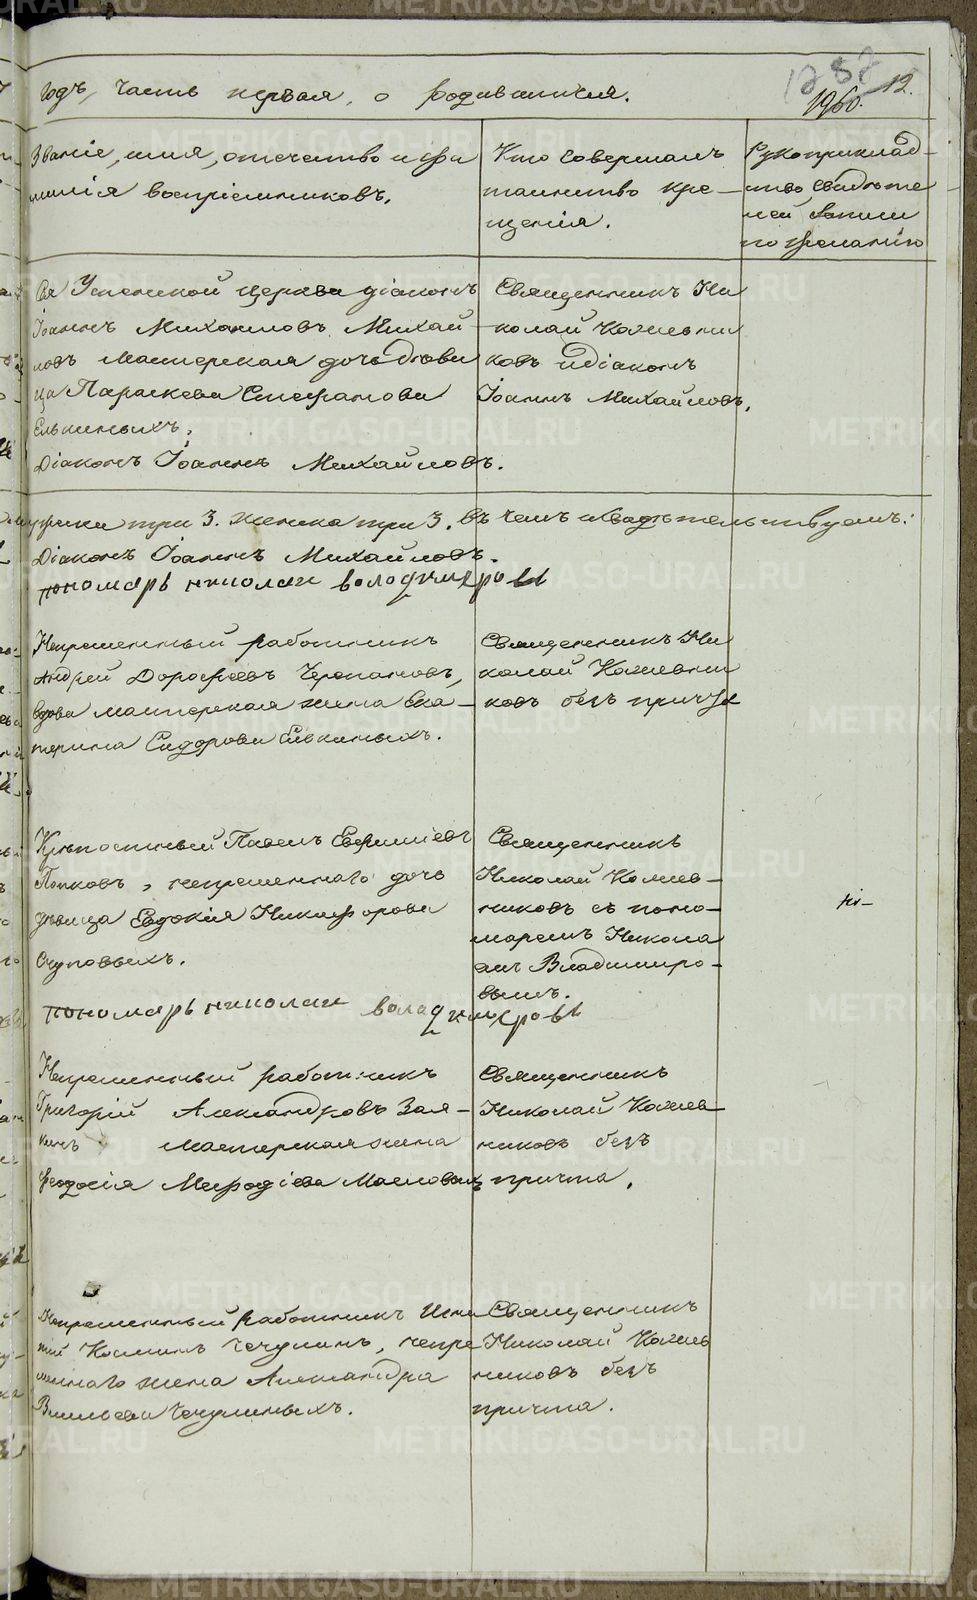 годъ, часть первая, о родившихся.
1960. 12.
Званіе, имя, отечество и фа
милія воспріемниковъ.
Кто совершалъ
таинство кре-
щенія.
Рукоприклад-
ство свидѣте
лей записи
по желанію
Успенской церкви діаконъ
Іоаннъ Михаиловъ Михай-
ловъ мастерская дочь дѣви
ца Параскева Стефанова
Елькиныхъ.
Діаконъ Іоаннъ Михайловъ.
Священникъ Ни
колай Кожевни
ковъ и діаконъ
Іоаннъ Михайловъ.
три 3. женска три 3. въ чемъ и свидѣтельствуемъ:
Діаконъ Іоаннъ Михайловъ.
пономарь николаи володимеровы
Непременный работникъ
Андрей Дорофеевъ Черепановъ,
вдова мастерская жена Ека-
терина Сидорова Елькиныхъ.
Священникъ Ни
колай Кожевни
ковъ безъ причта
Крѣпостный Павелъ Евфиміевъ
Попковъ, непременнаго дочь
дѣвица Евдокія Никифорова
пономарь николаи володимеровы
Священникъ
Николай Кожев-
никовъ съ поно-
маремъ Никола
емъ Владимиро-
вымъ.
Непременный работникъ
Григорій Александровъ Заля-
кинъ мастерская жена
Феодосія Мефодіева Масловыхъ
Священникъ
Николай Кожев
никовъ безъ
причта.
Непременный работникъ Игна
тій Козминъ Чечулинъ, непре
меннаго жена Александра
Васильева Чечулиныхъ.
Священникъ
Николай Кожев
никовъ безъ
причта.
METRIKI.GASO-URAL.RU